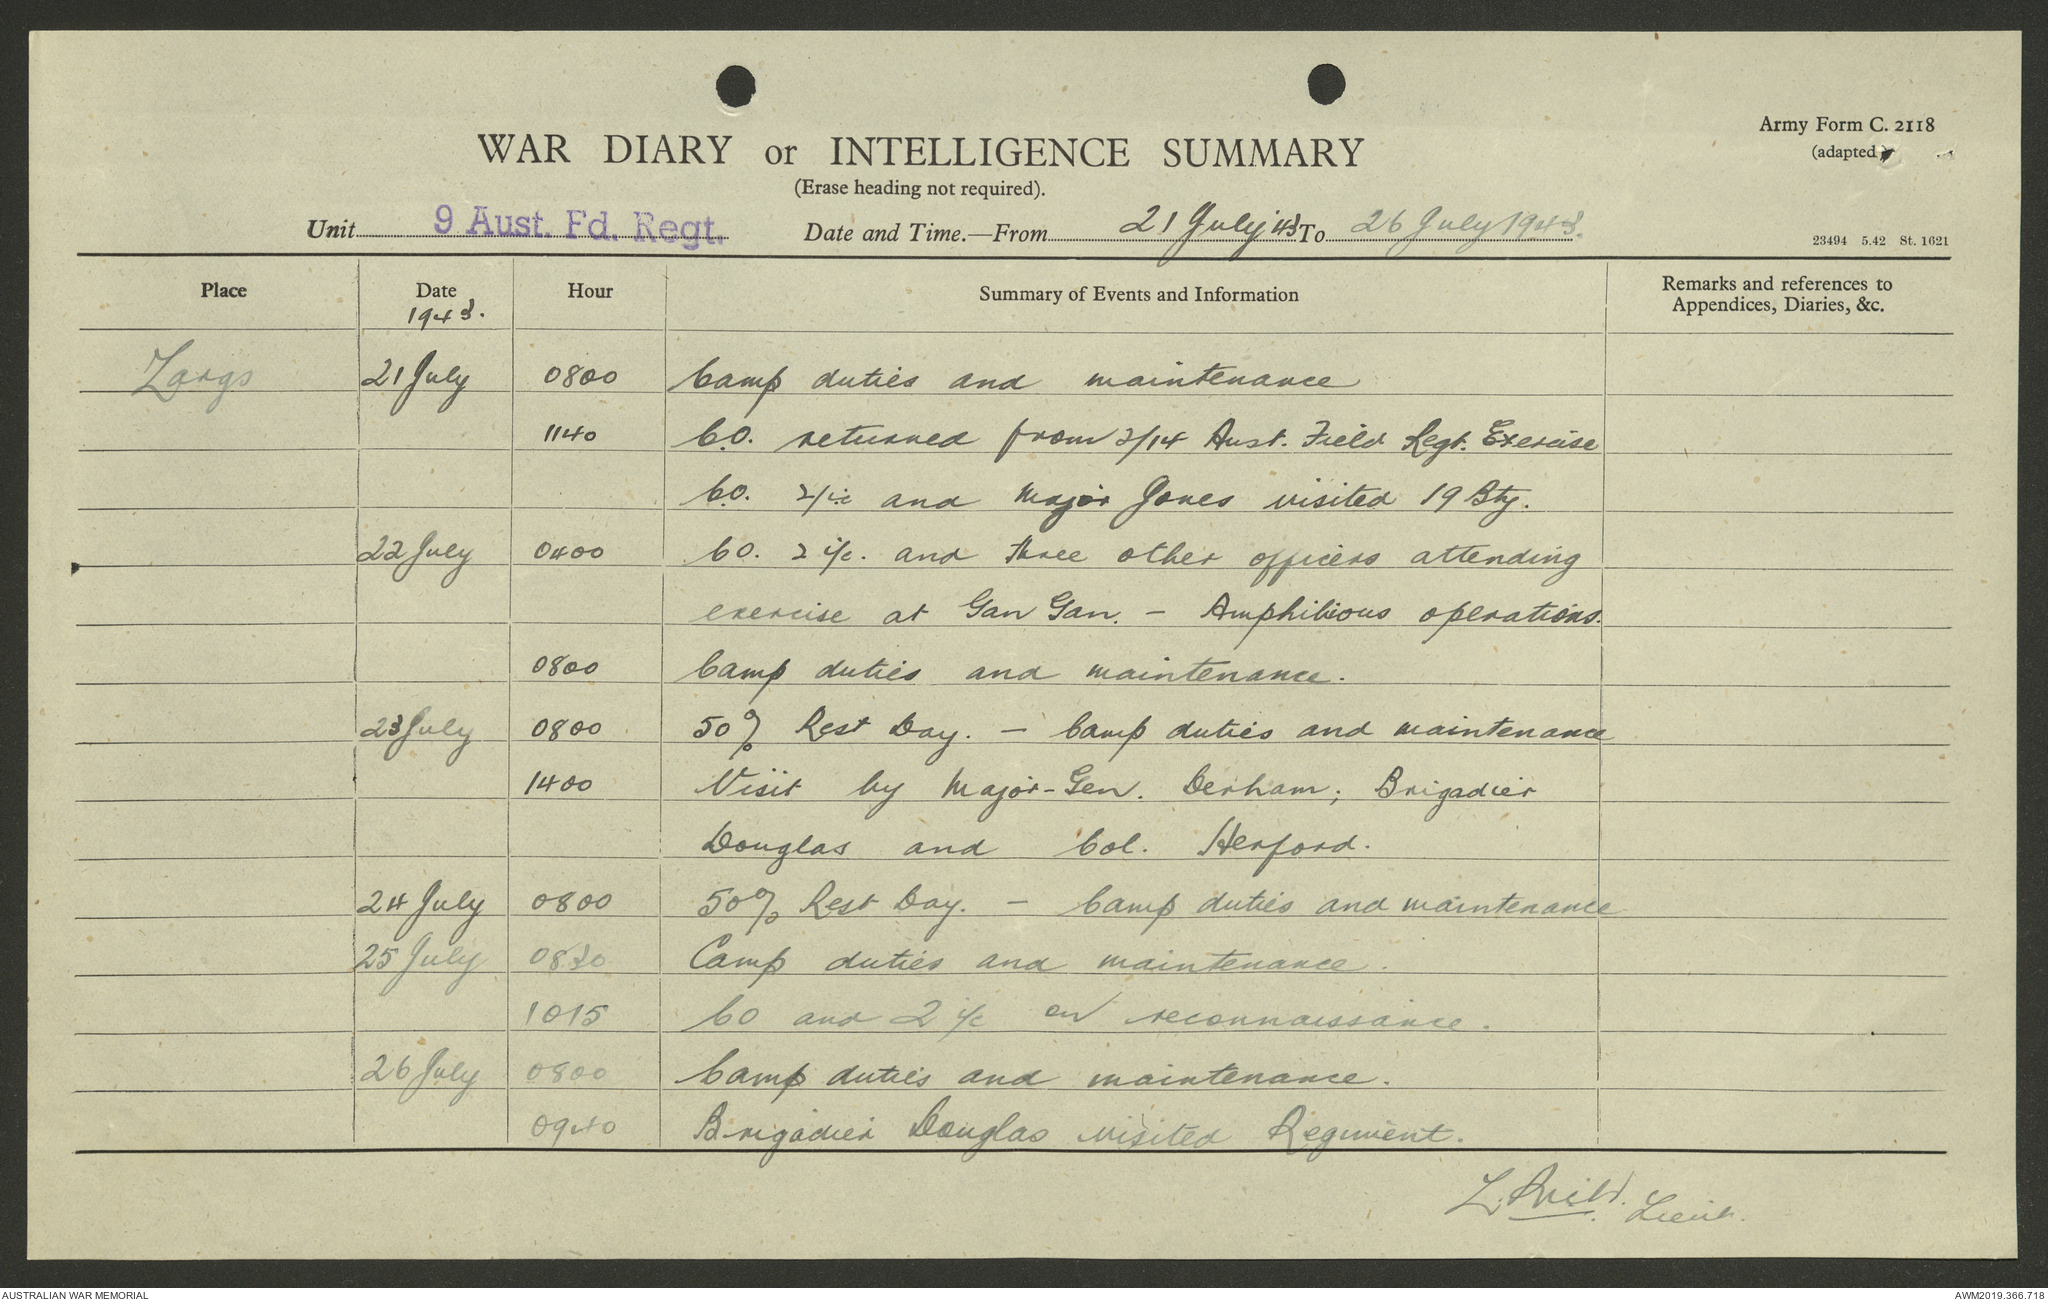 Army Form C. 2118
(adapted)
WAR DIARY or INTELLIGENCE SUMMARY
(Erase heading not required).
Unit 9 Aust. Fd. Regt. Date and Time.—From 21 July '43 To 26 July 1943.
23494 5.42 St. 1621
Place Date Hour Summary of Events and Information Remarks and references to
Appendices, Diaries, &c.
1943.
Largs 21 July 0800 Camp duties and maintenance
1140 CO. returned from 2/14 Aust. Field Regt. Exercise
CO. 2/ic and Major Jones visited 19 Bty.
22 July 0400 CO. 2 i/c. and three other officers attending
exercise at Gan Gan. – Amphibious operations.
0800 Camp duties and maintenance.
23 July 0800 50% Rest Day. – Camp duties and maintenance
1400 Visit by Major-Gen. Derham; Brigadier
Douglas and Col. Herford.
24 July 0800 50% Rest Day. – Camp duties and maintenance
25 July 0830 Camp duties and maintenance.
1015 CO and 2 i/c on reconnaissance.
26 July 0800 Camp duties and maintenance.
0940 Brigadier Douglas visited Regiment.
L. Lieut.
AUSTRALIAN WAR MEMORIAL
AWM2019.366.718